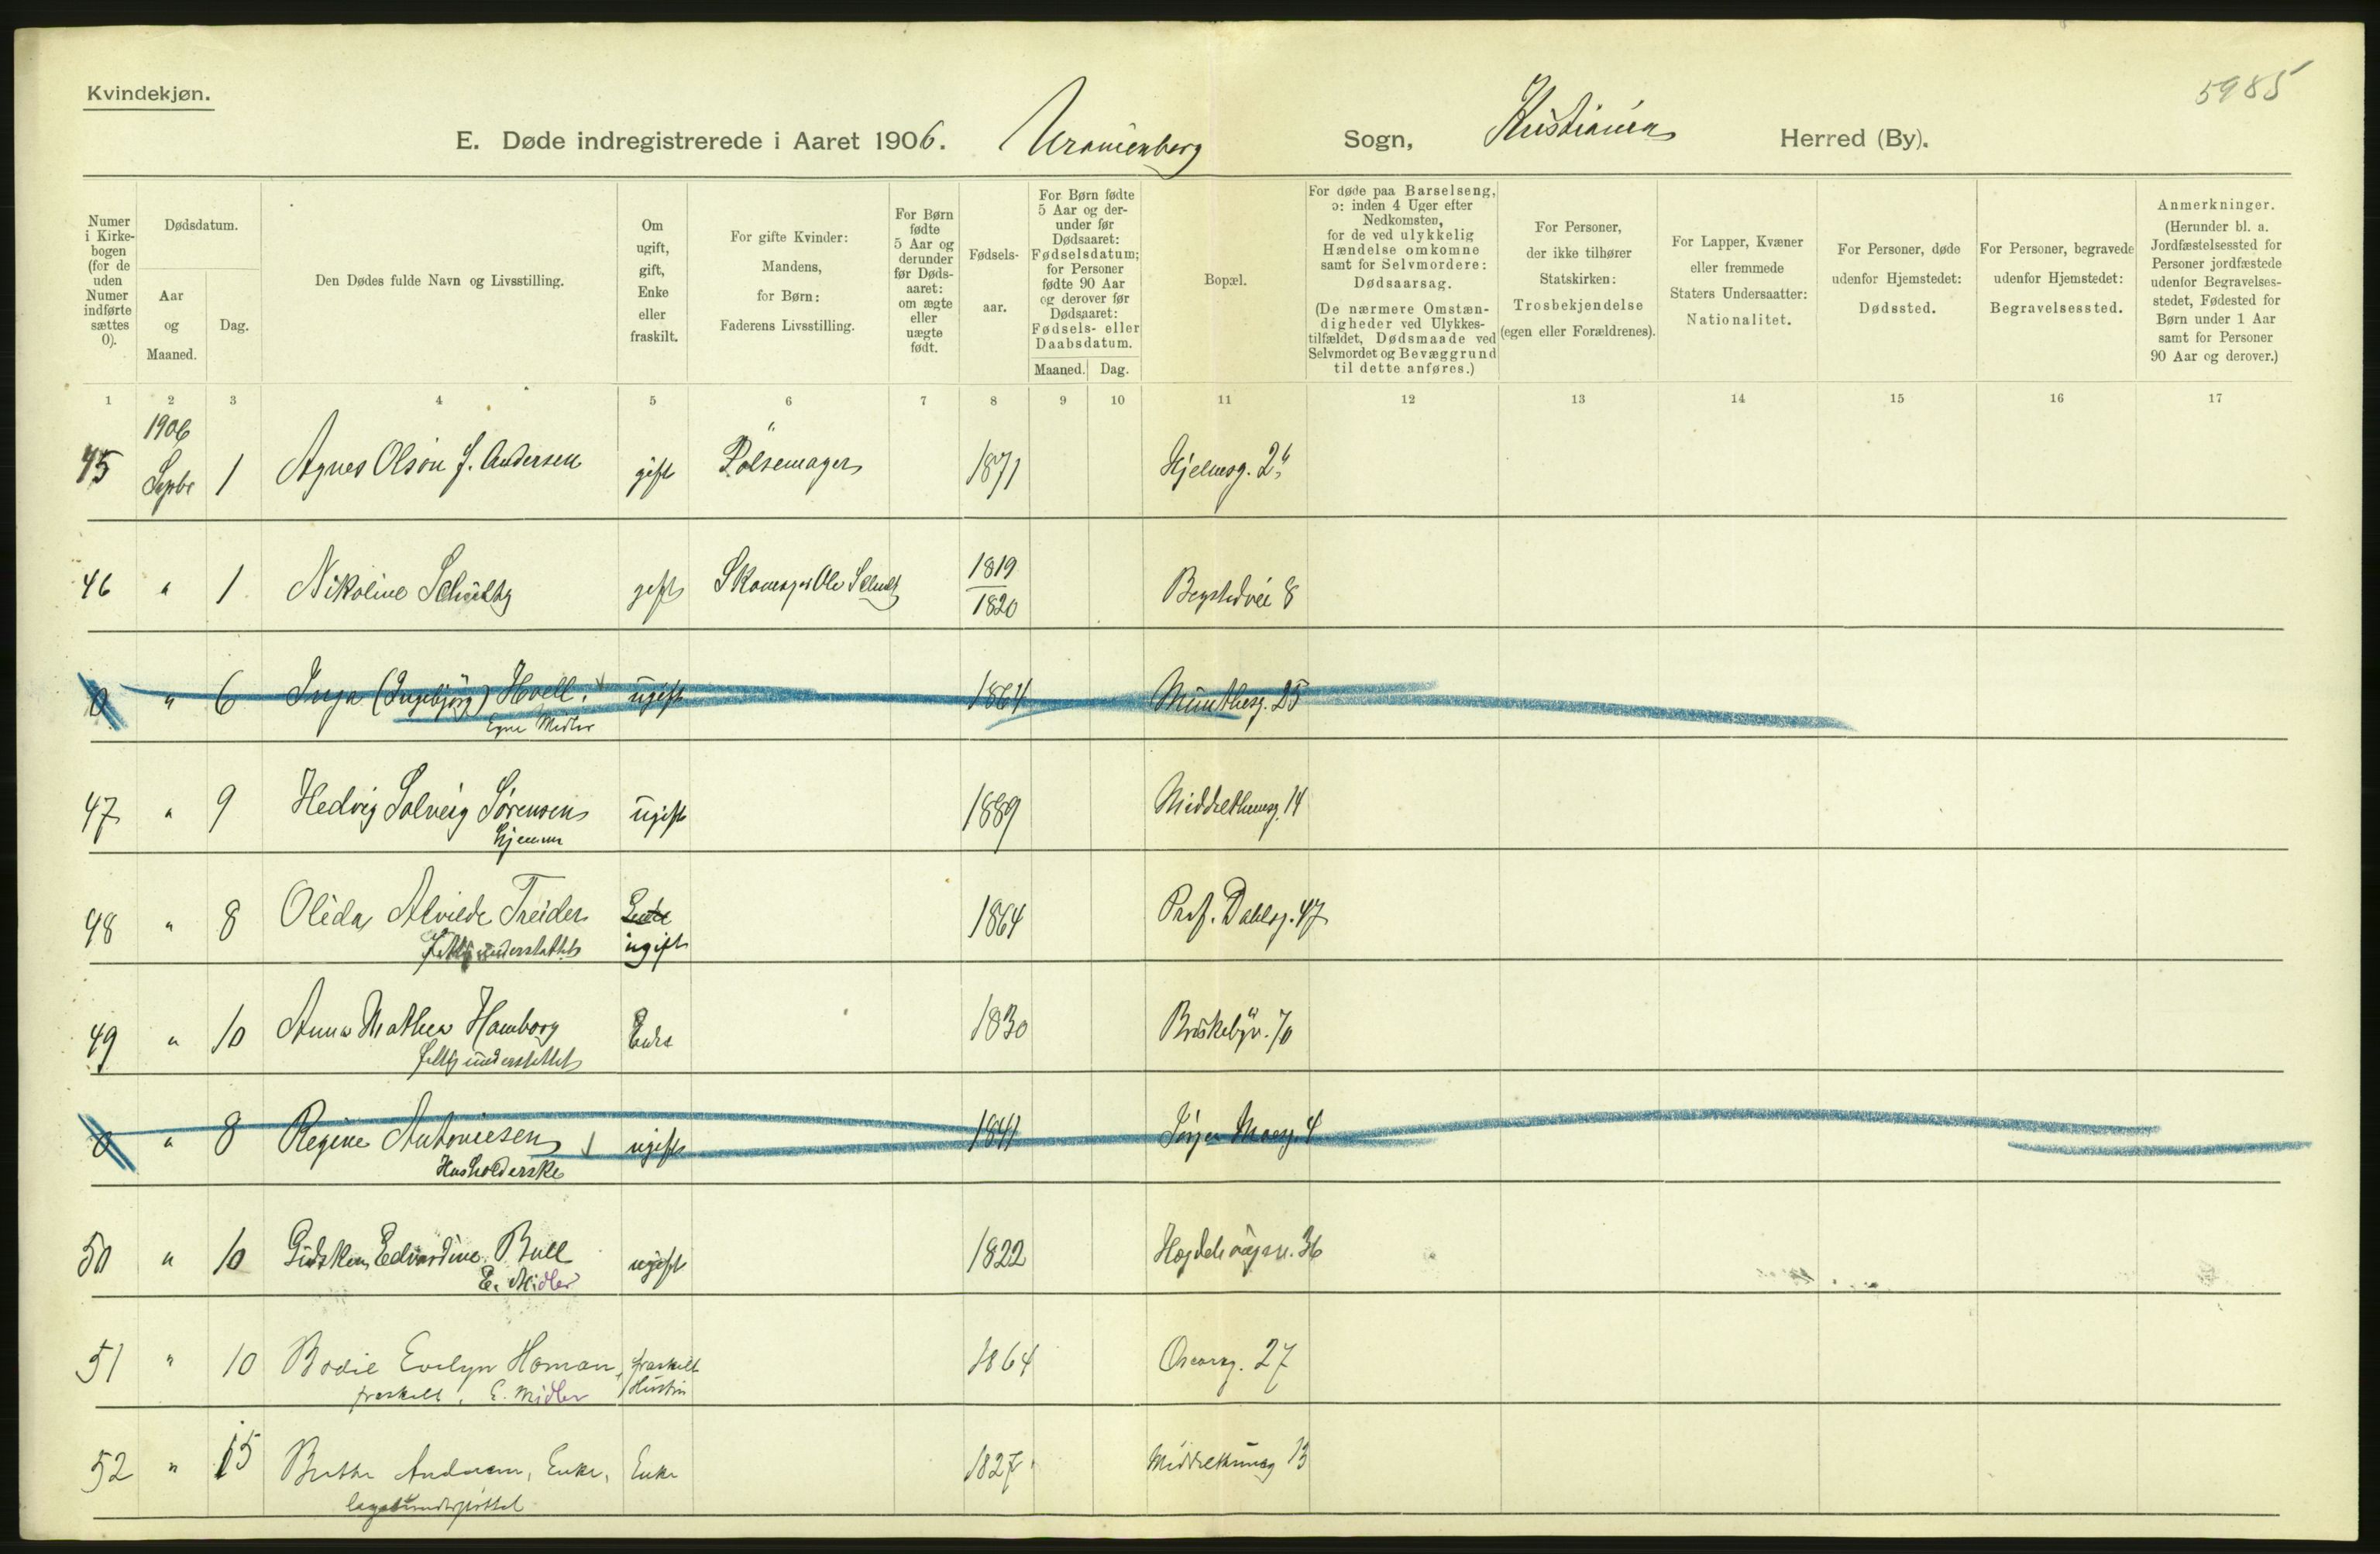 Kvindekjøn.
5985
E. Døde indregistrerede i Aaret 1906. Uranienborg Sogn, Kristiania Herred (By).
Numer i Kirke-bogen (for de uden Numer indførte sættes 0).
Dødsdatum.
Aar og Maaned.
Dag.
Den Dødes fulde Navn og Livsstilling.
Om ugift, gift, Enke eller fraskilt.
For gifte Kvinder: Mandens, for Børn: Faderens Livsstilling.
For Børn fødte 5 Aar og derunder før Døds-aaret: om ægte eller uægte født.
Fødsels-aar.
For Børn fødte 5 Aar og der-under før Dødsaaret: Fødselsdatum; for Personer fødte 90 Aar og derover før Dødsaaret: Fødsels- eller Daabsdatum.
Maaned. Dag.
Bopæl.
For døde paa Barselseng, ɔ: inden 4 Uger efter Nedkomsten, for de ved ulykkelig Hændelse omkomne samt for Selvmordere: Dødsaarsag.
(De nærmere Omstæn-digheder ved Ulykkes-tilfældet, Dødsmaade ved Selvmordet og Bevæggrund til dette anføres.)
For Personer, der ikke tilhører Statskirken: Trosbekjendelse (egen eller Forældrenes).
For Lapper, Kvæner eller fremmede Staters Undersaatter: Nationalitet.
For Personer, døde udenfor Hjemstedet: Dødssted.
For Personer, begravede udenfor Hjemstedet: Begravelsessted.
Anmerkninger.
(Herunder bl. a. Jordfæstelsessted for Personer jordfæstede udenfor Begravelses-stedet, Fødested for Børn under 1 Aar samt for Personer 90 Aar og derover.)
1 2 3 4 5 6 7 8 9 10 11 12 13 14 15 16 17
1906
45 Septbr 1 Agnes Olson f. Andersen gift Pølsemager 1871 Hjelmsg. 2
46 " 1 Nikoline Schultz gift Skomager Ole Schultz 1819
1820 8
0 " 6 Inga (Ingebjörg) Hoell. ugift 1864 Munthesg. 25
Egne Midler
47 " 9 Hedvig Solveig Sørensen ugift 1889 Middelthunsg. 14
hjemme
48 " 8 Olida Alvilde Treider Enke 1864 Prof. Dahlsg. 47
understøttet ugift
49 " 10 Anna Mathea Hamborg Enke 1830 Briskebyv. 70
understøttet
0 " 8 Regine Antoniesen ugift 1841 Jørgen Moesg. 4
Husholderske
50 " 10 Gidsken Edvardine Bull ugift 1822 Hegdehaugsv. 36
E. Midler
51 " 10 Bodil Evelyn Homan, fraskilt 1864 Oscarsg. 27
fraskilt, E. Midler Hustru
52 " 15 Berthe Andersen, Enke, Enke 1827 Middelthunsg 13